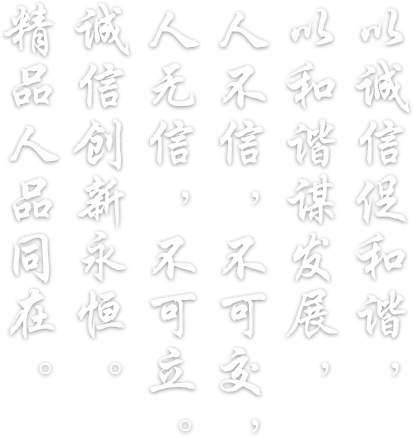 以诚信促和谐，
以和谐谋发展，
人不信，不可交，
人无信，不可立。
诚信创新永恒。
精品人品同在。